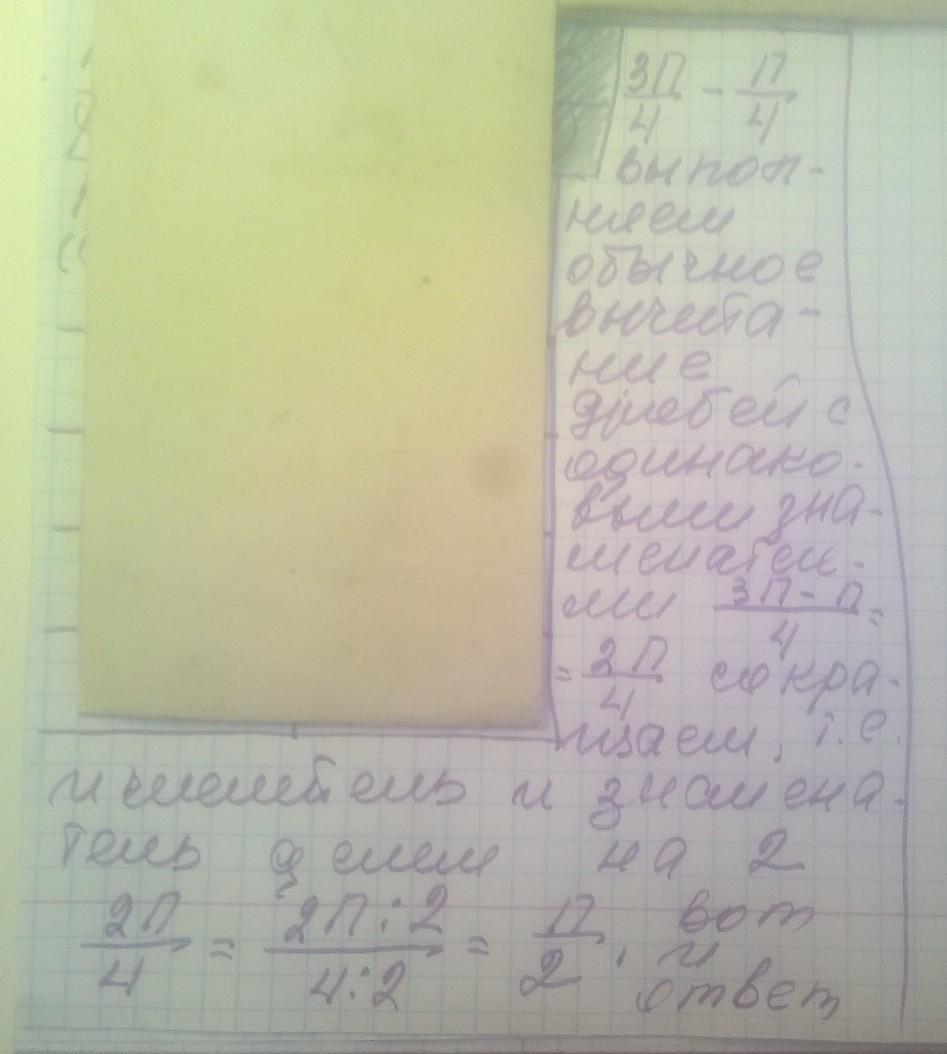 3П/4 - П/4
выпол-
няем
обычное
вычита-
ние
дробей с
одинако-
выми зна-
менателя-
ми (3П - П)/4 =
= 2П/4 сокра-
щаем, т.е.
и числитель и знамена-
тель делим на 2
2П/4 = 2П:2/4:2 = П/2, вот
и
ответ